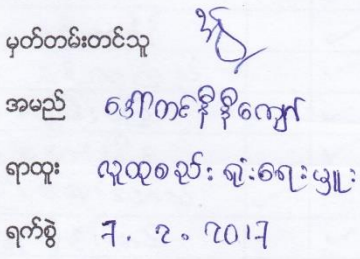 မှတ်တမ်းတင်သူ
အမည် ဒေါ်တင်နီနီကျော်
ရာထူး လူထုစည်းရုံးရေးမှူး
ရက်စွဲ 7. 2. 2017